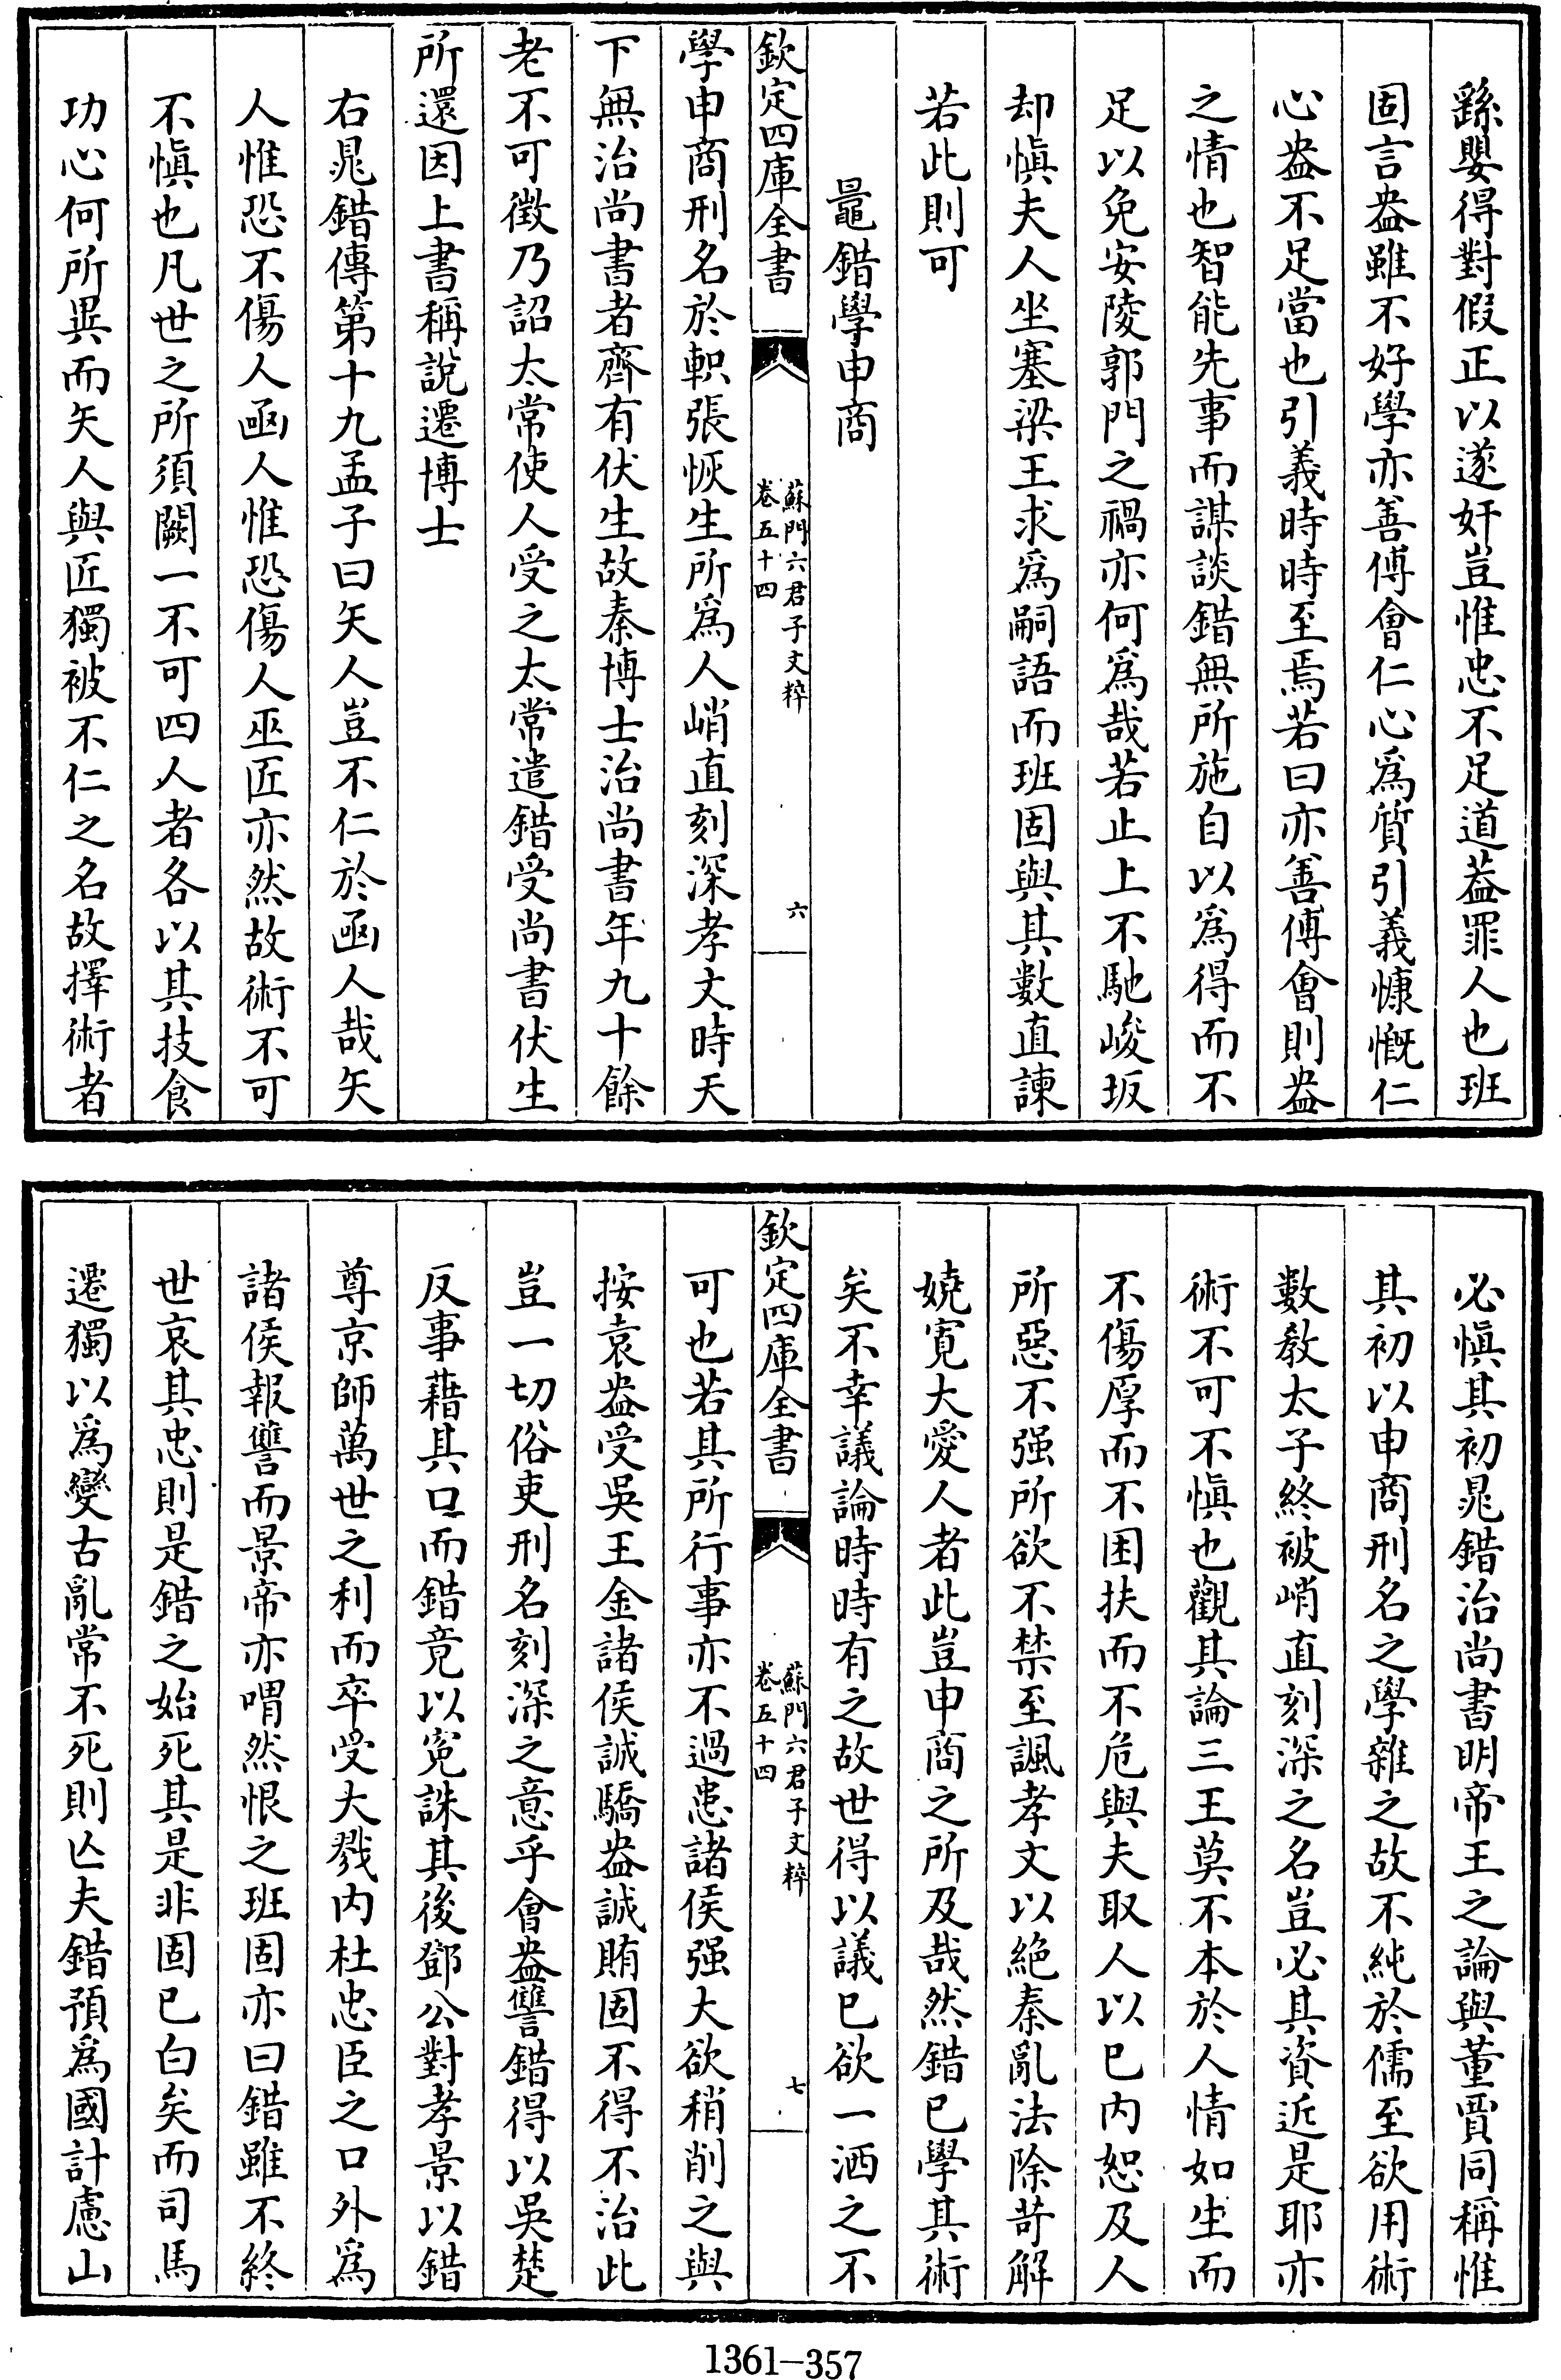 繇嬰得對假正以遂奸豈惟忠不足道葢罪人也班
固言盎雖不好學亦善傅會仁心爲質引義慷慨仁
心盎不足當也引義時時至焉若曰亦善傅會則盎
之情也智能先事而謀談錯無所施自以爲得而不
足以免安陵郭門之禍亦何爲哉若止上不馳峻坂
却愼夫人坐塞梁王求爲嗣語而班固與其數直諫
若此則可
鼂錯學申商
欽定四庫全書
蘇門六君子文粹
卷五十四
六
學申商刑名於軹張恢生所爲人峭直刻深孝文時天
下無治尚書者齊有伏生故秦博士治尚書年九十餘
老不可徵乃詔太常使人受之太常遣錯受尚書伏生
所還因上書稱說遷博士
右晁錯傳第十九孟子曰矢人豈不仁於函人哉矢
人惟恐不傷人函人惟恐傷人巫匠亦然故術不可
不愼也凡世之所須闕一不可四人者各以其技食
功心何所異而矢人與匠獨被不仁之名故擇術者
必愼其初晁錯治尚書明帝王之論與董賈同稱惟
其初以申商刑名之學雜之故不純於儒至欲用術
數教太子終被峭直刻深之名豈必其資近是耶亦
術不可不愼也觀其論三王莫不本於人情如生而
不傷厚而不困扶而不危與夫取人以已内恕及人
所惡不强所欲不禁至諷孝文以絶秦亂法除苛解
嬈寛大愛人者此豈申商之所及哉然錯已學其術
矣不幸議論時時有之故世得以議已欲一洒之不
欽定四庫全書
蘇門六君子文粹
卷五十四
七
可也若其所行事亦不過患諸侯强大欲稍削之與
按袁盎受吳王金諸侯誠驕盎誠賄固不得不治此
豈一切俗吏刑名刻深之意乎會盎讐錯得以吳楚
反事藉其口而錯竟以寃誅其後鄧公對孝景以錯
尊京師萬世之利而卒受大戮内杜忠臣之口外爲
諸侯報讐而景帝亦喟然恨之班固亦曰錯雖不終
世哀其忠則是錯之始死其是非固已白矣而司馬
遷獨以爲變古亂常不死則亾夫錯預爲國計慮山
1361-357